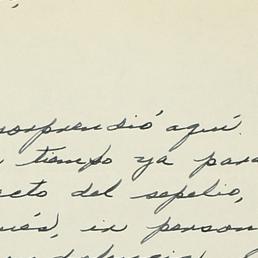 sorprendió aquí.
tiempo ya para
acto del sepelio,
ués, in person